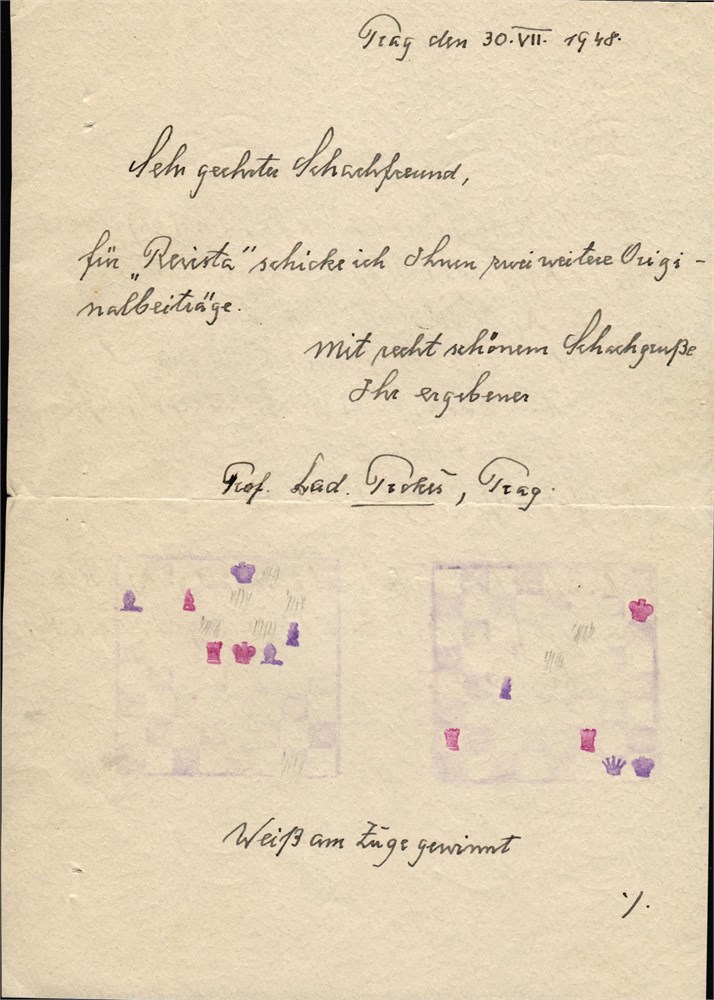 Prag den 30.VII. 1948.
Sehr geehrter Schachfreund,
für „Revista“ schicke ich Ihnen zwei weitere Origi-
nalbeiträge.
Mit recht schönem Schachgruße
Ihr ergebener
Prof. Lad. Prokeš, Prag.
Weiß am Zuge gewinnt
./.